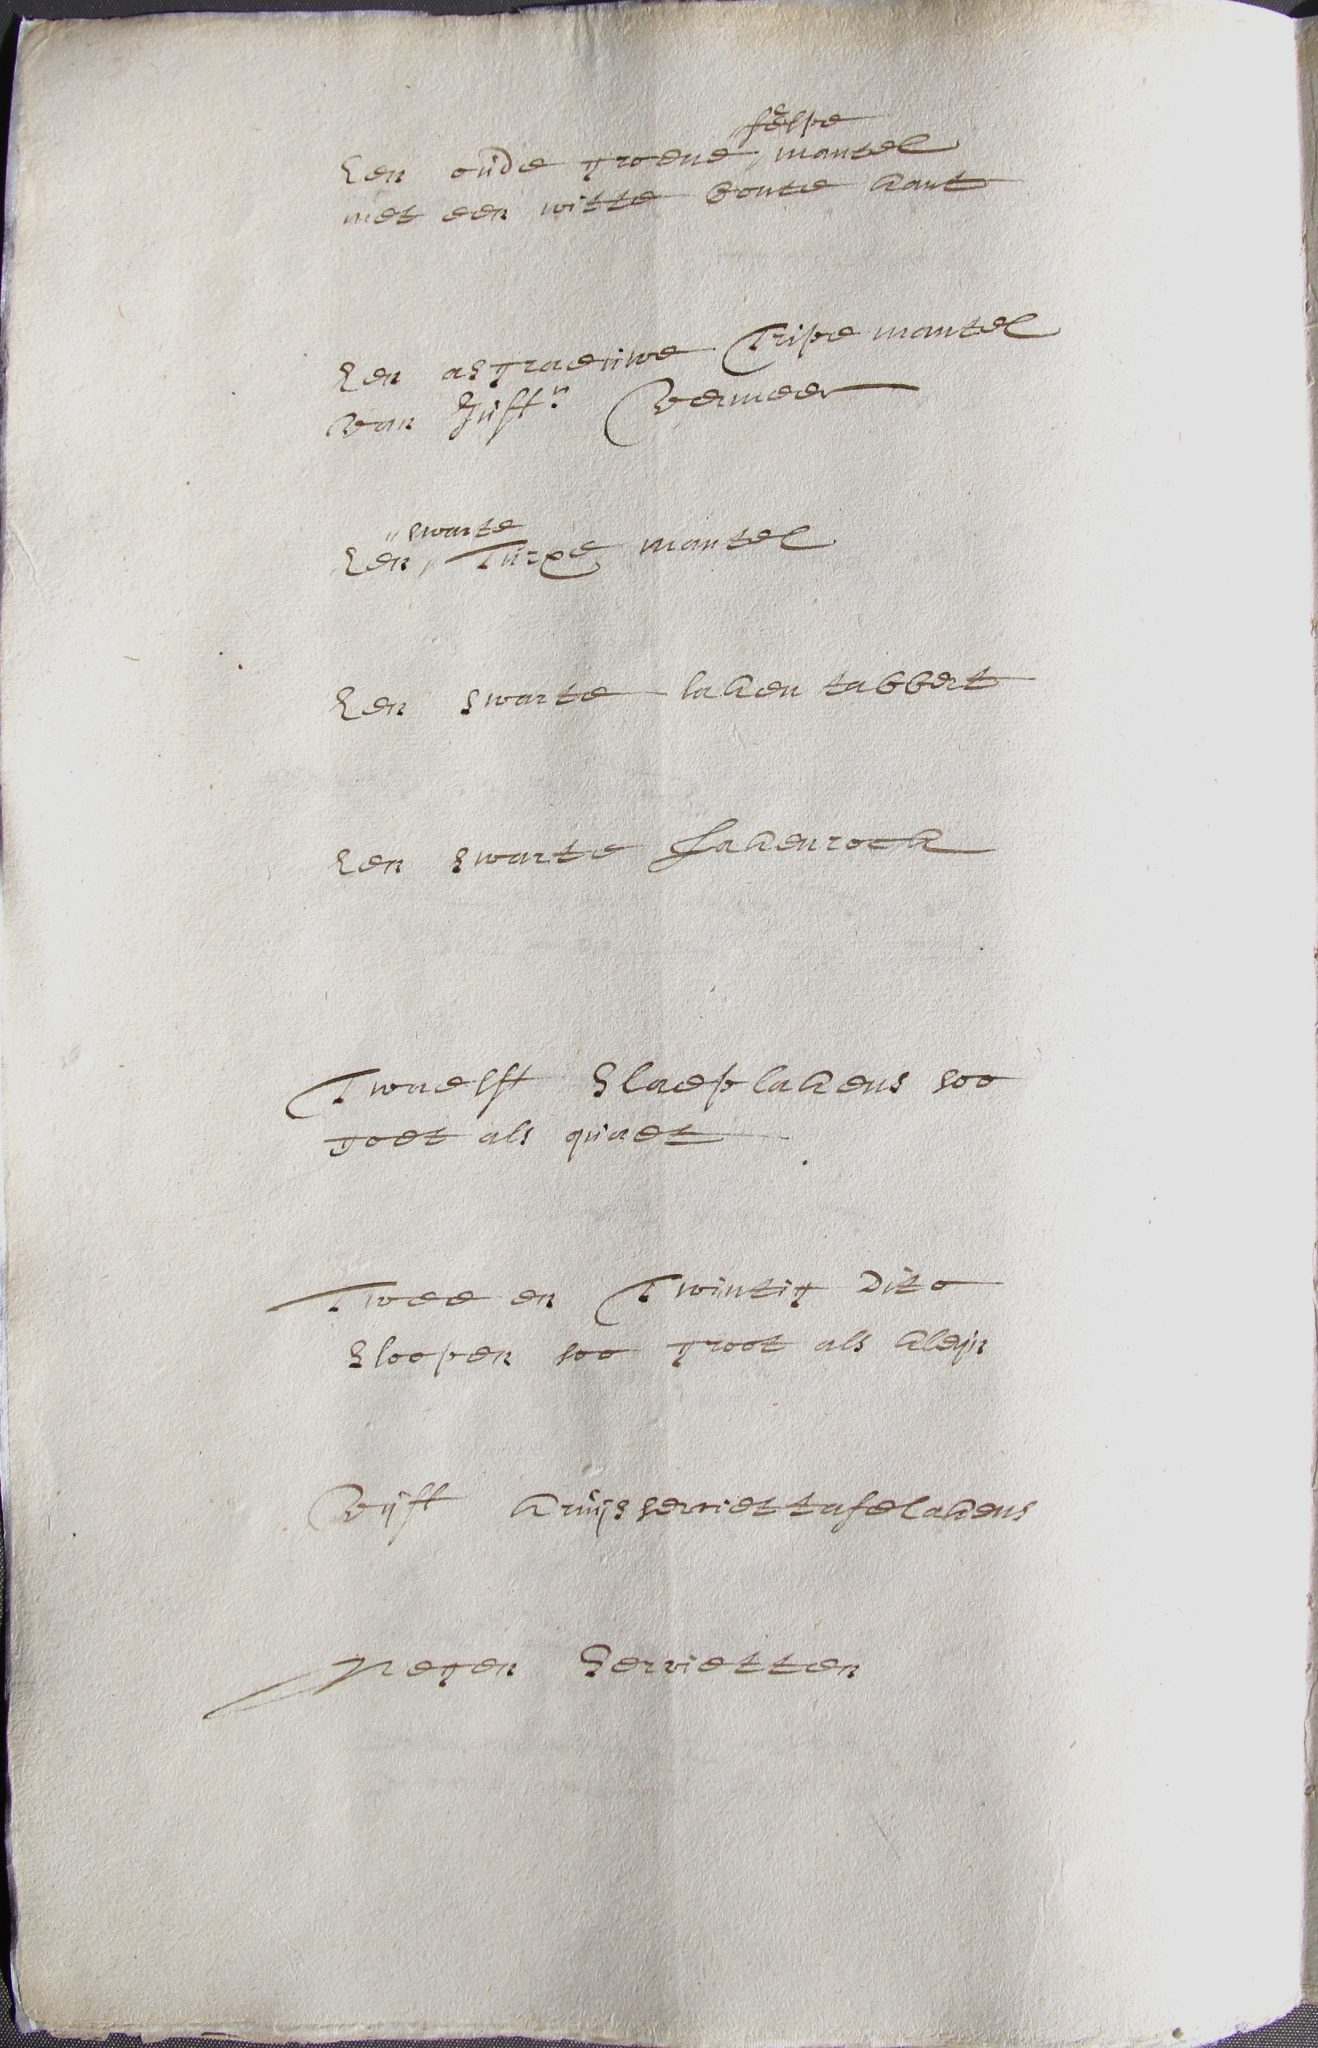 felpe
Een oude groene mantel
met een witte bonte kant
Een asgraeuwe Tripe mantel
van Juffr. Vermeer
swarte
Een mantel
Een swarte laken tabbert
Een swarte lakenrock
Twaelff Slaeplakens soo
goet als quaet
Twee en Twintig Dito
Sloopen soo groot als kleijn
Vijff kruijsserviettafelakens
Negen Servietten